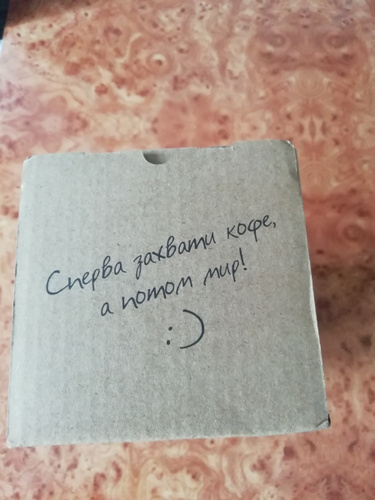 Сперва захвати кофе,
а потом мир!
:)